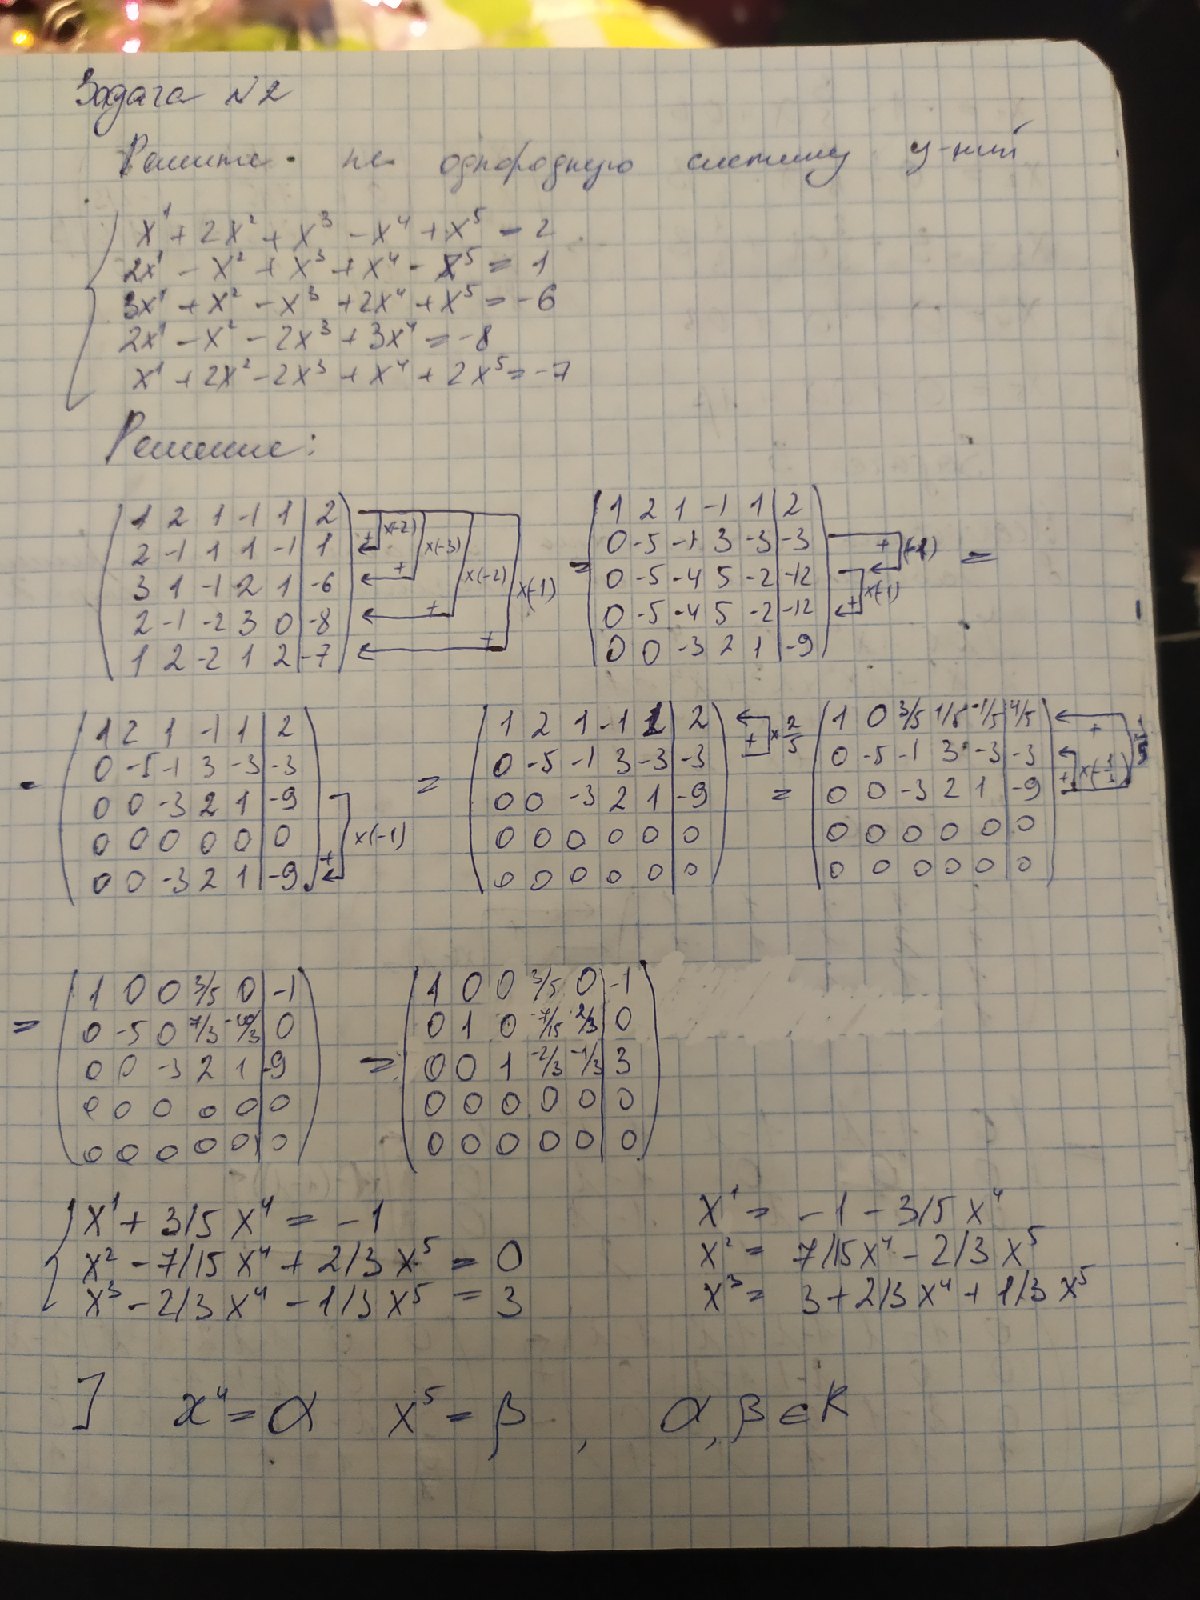 Задача №2
Решите не однородную систему у-ний
x¹ + 2x² + x³ - x⁴ + x⁵ = 2
2x¹ - x² + x³ + x⁴ - x⁵ = 1
3x¹ + x² - x³ + 2x⁴ + x⁵ = -6
2x¹ - x² - 2x³ + 3x⁴ = -8
x¹ + 2x² - 2x³ + x⁴ + 2x⁵ = -7
Решение:
1 2 1 -1 1 | 2
2 -1 1 1 -1 | 1 + x(-2)
3 1 -1 2 1 | -6 + x(-3)
2 -1 -2 3 0 | -8 + x(-2)
1 2 -2 1 2 | -7 + x(-1)
= 1 2 1 -1 1 | 2
0 -5 -1 3 -3 | -3
0 -5 -4 5 -2 | -12 + (-1) =
0 -5 -4 5 -2 | -12 + x(-1)
0 0 -3 2 1 | -9
= 1 2 1 -1 1 | 2
0 -5 -1 3 -3 | -3
0 0 -3 2 1 | -9
0 0 0 0 0 | 0
0 0 -3 2 1 | -9 + x(-1)
= 1 2 1 -1 1 | 2 + x 2/5
0 -5 -1 3 -3 | -3
0 0 -3 2 1 | -9
0 0 0 0 0 | 0
0 0 0 0 0 | 0
= 1 0 3/5 1/5 -1/5 | 4/5 +
0 -5 -1 3 -3 | -3 + x(-1/3)
0 0 -3 2 1 | -9
0 0 0 0 0 | 0
0 0 0 0 0 | 0
= 1 0 0 3/5 0 | -1
0 -5 0 7/3 -10/3 | 0
0 0 -3 2 1 | -9
0 0 0 0 0 | 0
0 0 0 0 0 | 0
= 1 0 0 3/5 0 | -1
0 1 0 -7/15 2/3 | 0
0 0 1 -2/3 -1/3 | 3
0 0 0 0 0 | 0
0 0 0 0 0 | 0
x¹ + 3/5 x⁴ = -1
x² - 7/15 x⁴ + 2/3 x⁵ = 0
x³ - 2/3 x⁴ - 1/3 x⁵ = 3
x¹ = -1 - 3/5 x⁴
x² = 7/15 x⁴ - 2/3 x⁵
x³ = 3 + 2/3 x⁴ + 1/3 x⁵
] x⁴ = α x⁵ = β , α, β ∈ K